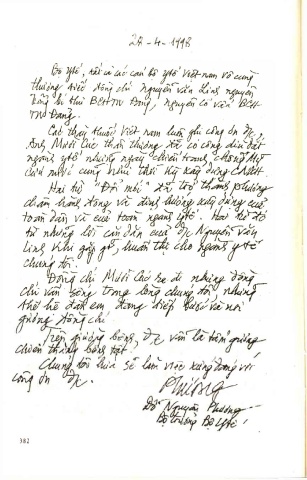 28-4-1998
Bộ Y tế, tất cả các cán bộ y tế Việt nam vô cùng
thương tiếc đồng chí Nguyễn Văn Linh nguyên
Tổng bí thư BCHTW Đảng, nguyên cố vấn BCH
TW Đảng.
Các thầy thuốc Việt nam luôn ghi công ơn đ/c,
Anh Mười Cúc thân thương đã có công dìu dắt
ngành y tế những ngày chiến tranh chống Mỹ
cứu nước cũng như thời kỳ xây dựng CNXH.
Hai từ "Đổi mới" đã trở thành phương
châm hành động và định hướng xây dựng của
toàn dân và của toàn ngành y tế. Hai từ đó
từ những lời căn dặn của đ/c Nguyễn Văn
Linh khi gặp gỡ, huấn thị cho ngành y tế
chúng tôi.
Đồng chí Mười Cúc ra đi nhưng đồng
chí vẫn sống trong lòng chúng tôi, những
thế hệ đàn em đang tiếp bước và noi
gương đồng chí.
Trên giường bệnh, đ/c vẫn là tấm gương
chiến thắng bệnh tật.
Chúng tôi hứa sẽ làm việc xứng đáng với
công ơn đ/c.
Đỗ Nguyên Phương
Bộ trưởng Bộ Y tế
382